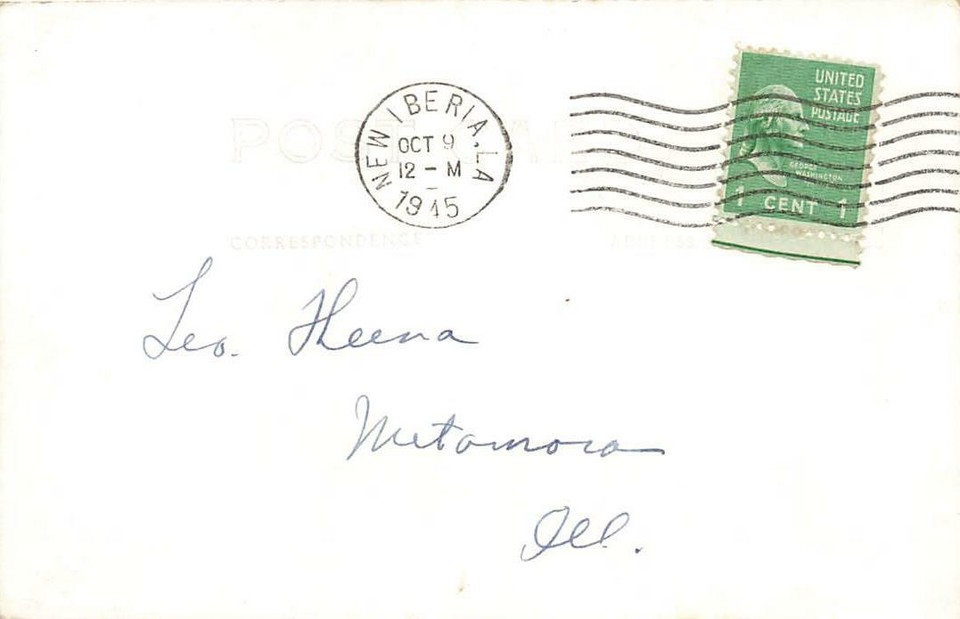 POST CARD
NEW IBERIA, LA
OCT 9
12 - M
1945
UNITED
STATES
POSTAGE
GEORGE
WASHINGTON
1 CENT 1
CORRESPONDENCE
ADDRESS
Metamora
Ill.